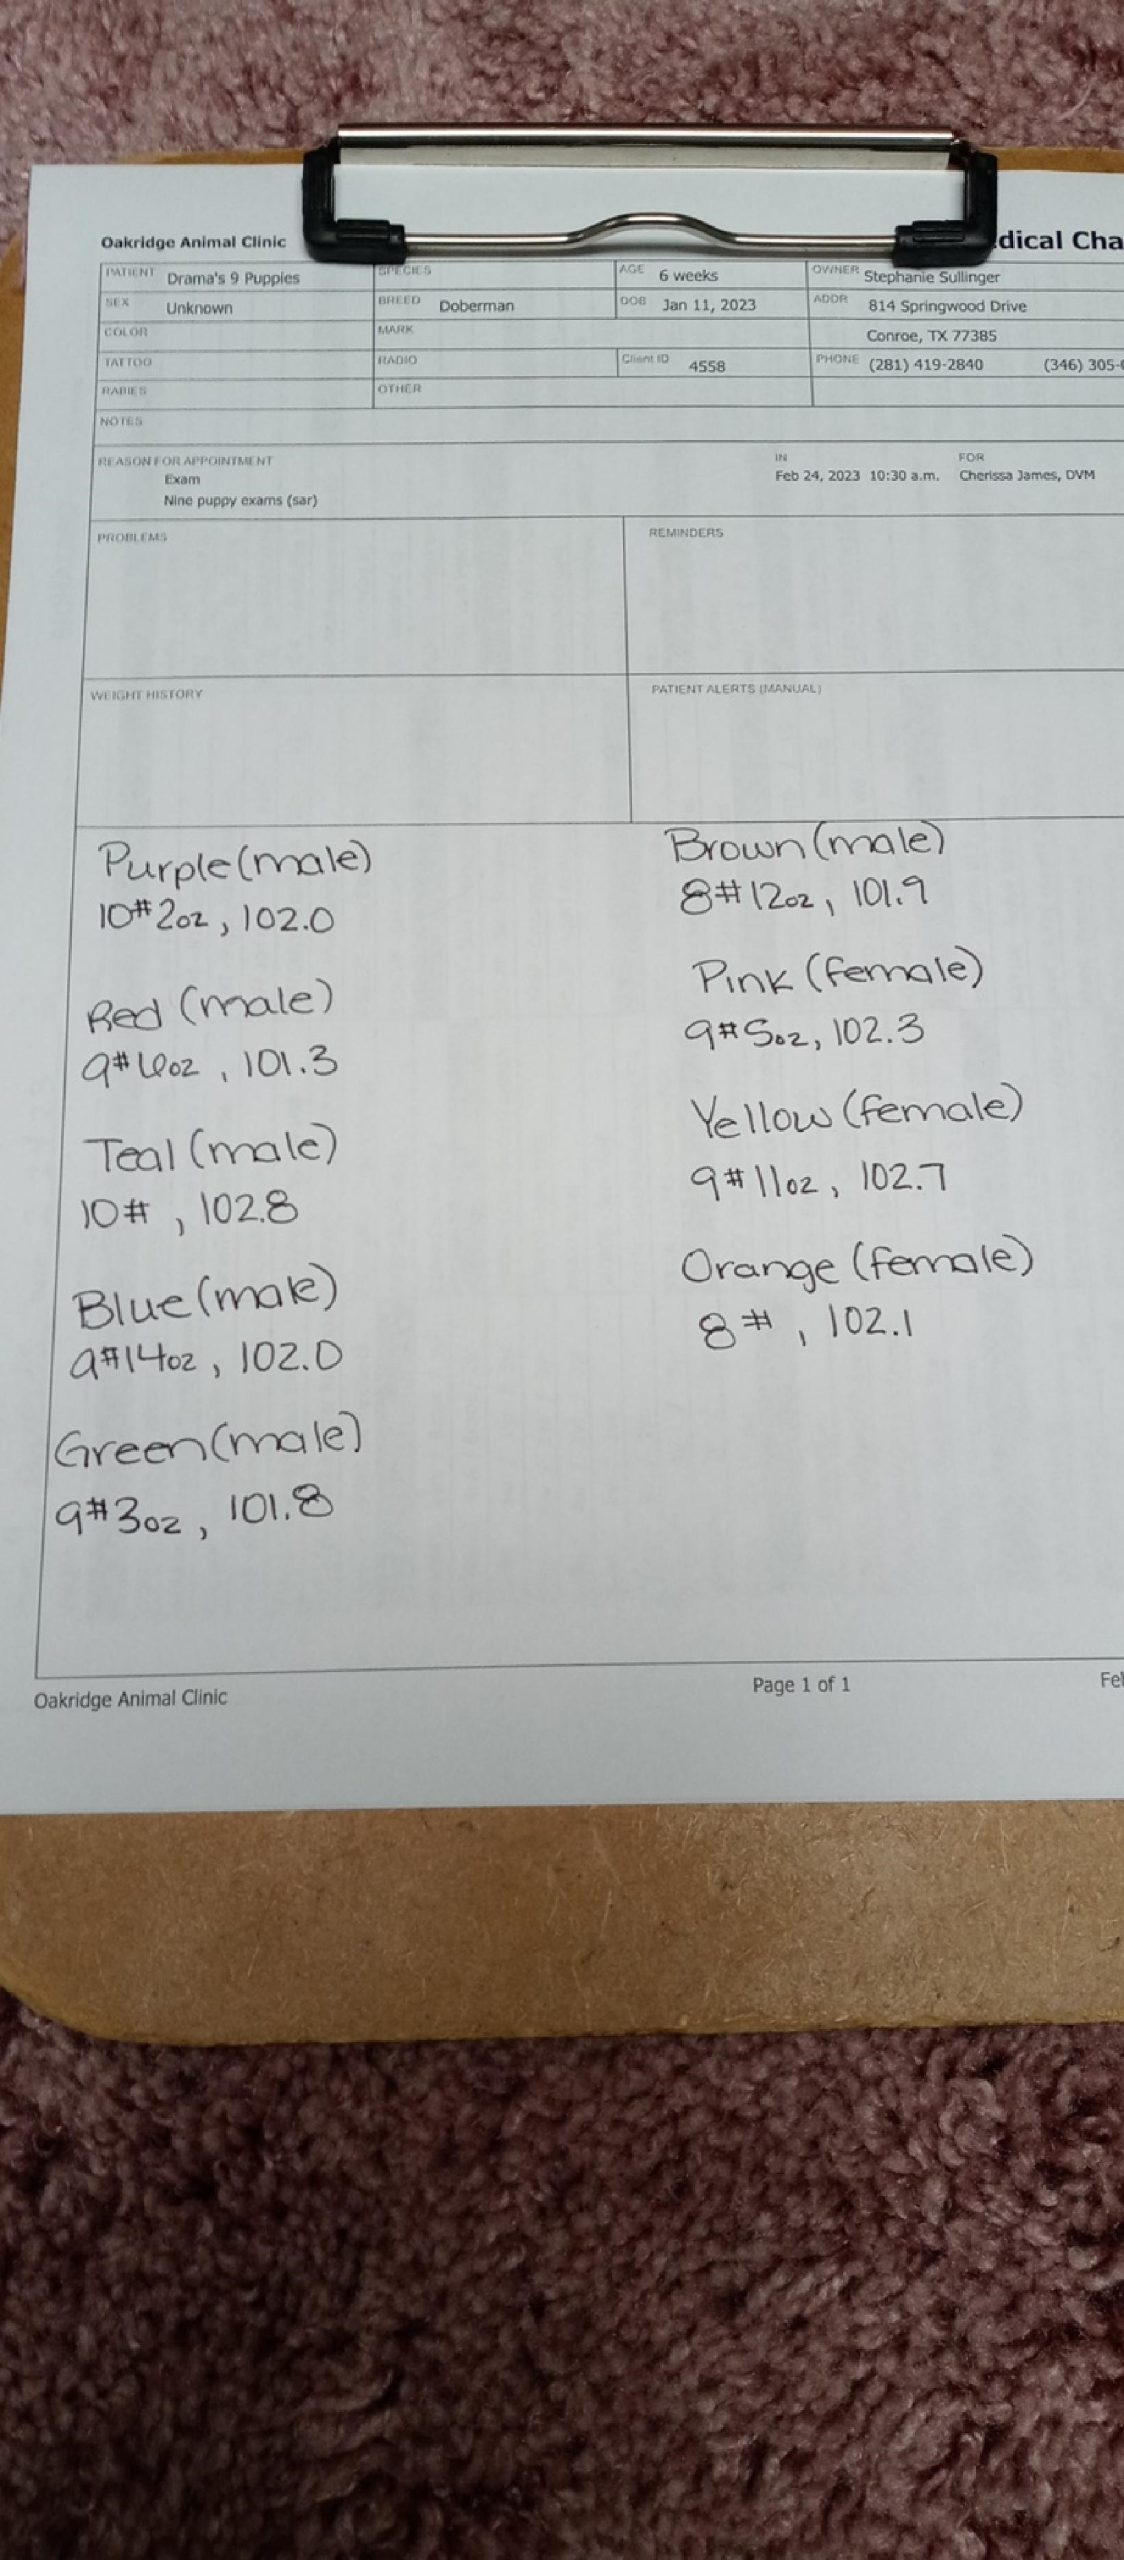 Oakridge Animal Clinic
dical Cha
PATIENT Drama's 9 Puppies SPECIES AGE 6 weeks OWNER Stephanie Sullinger
SEX Unknown BREED Doberman DOB Jan 11, 2023 ADDR 814 Springwood Drive
COLOR MARK Conroe, TX 77385
TATTOO RADIO Client ID 4558 PHONE (281) 419-2840 (346) 305-
RABIES OTHER
NOTES
REASON FOR APPOINTMENT IN FOR
Exam Feb 24, 2023 10:30 a.m. Cherissa James, DVM
Nine puppy exams (sar)
PROBLEMS REMINDERS
WEIGHT HISTORY PATIENT ALERTS (MANUAL)
Purple (male)
10# 2oz, 102.0
Red (male)
9# 6oz, 101.3
Teal (male)
10#, 102.8
Blue (male)
9# 14oz, 102.0
Green (male)
9# 3oz, 101.8
Brown (male)
8# 12oz, 101.9
Pink (female)
9# 5oz, 102.3
Yellow (female)
9# 11oz, 102.7
Orange (female)
8#, 102.1
Oakridge Animal Clinic Page 1 of 1 Feb